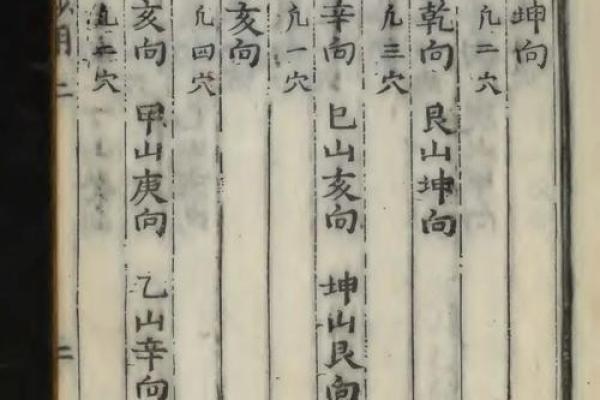 坤向
凢二穴
乾向 艮山坤向
凢三穴
辛向 巳山亥向 坤山艮向
凢一穴
亥向
凢四穴
亥向 甲山庚向 乙山辛向
凢二穴
二 二